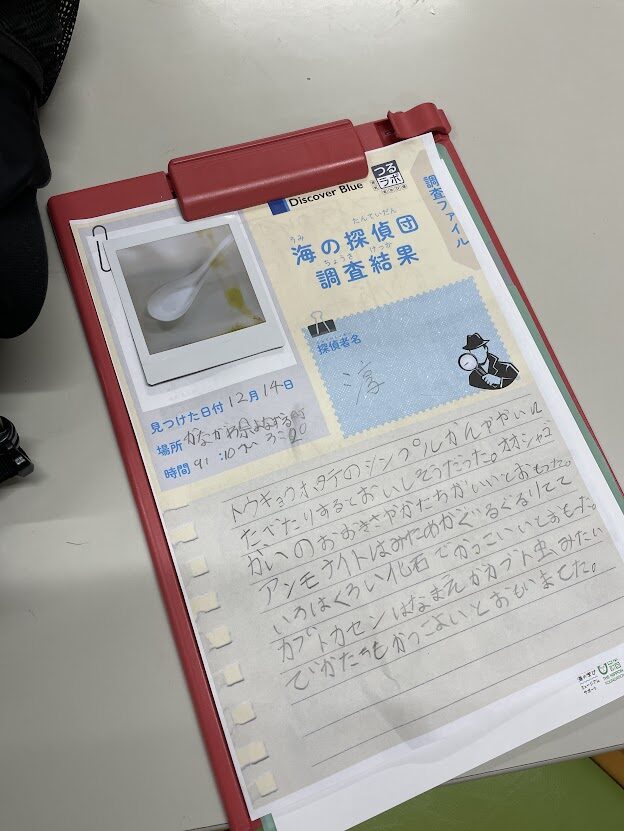 Discover Blue
つる
ラボ
調査ファイル
うみ たんていだん
海の探偵団
ちょうさ けっか
調査結果
探偵者名
淳
見つけた日付 12月14日
場所 かながわ県
時間
トウキョウホタテのシンプルかんがやいれ
たべたりするとおいしそうだった。オオシャコ
がいのおおきさやかたちがいいとおもった。
アンモナイトはみためがぐるぐるしてて
いろはくろい化石でかっこいいとおもった。
カブトカセンはなまえがカブト虫みたい
でかたちもかっこよいとおもいました。
海の学び
ミュージアム
サポート
THE NIPPON
FOUNDATION